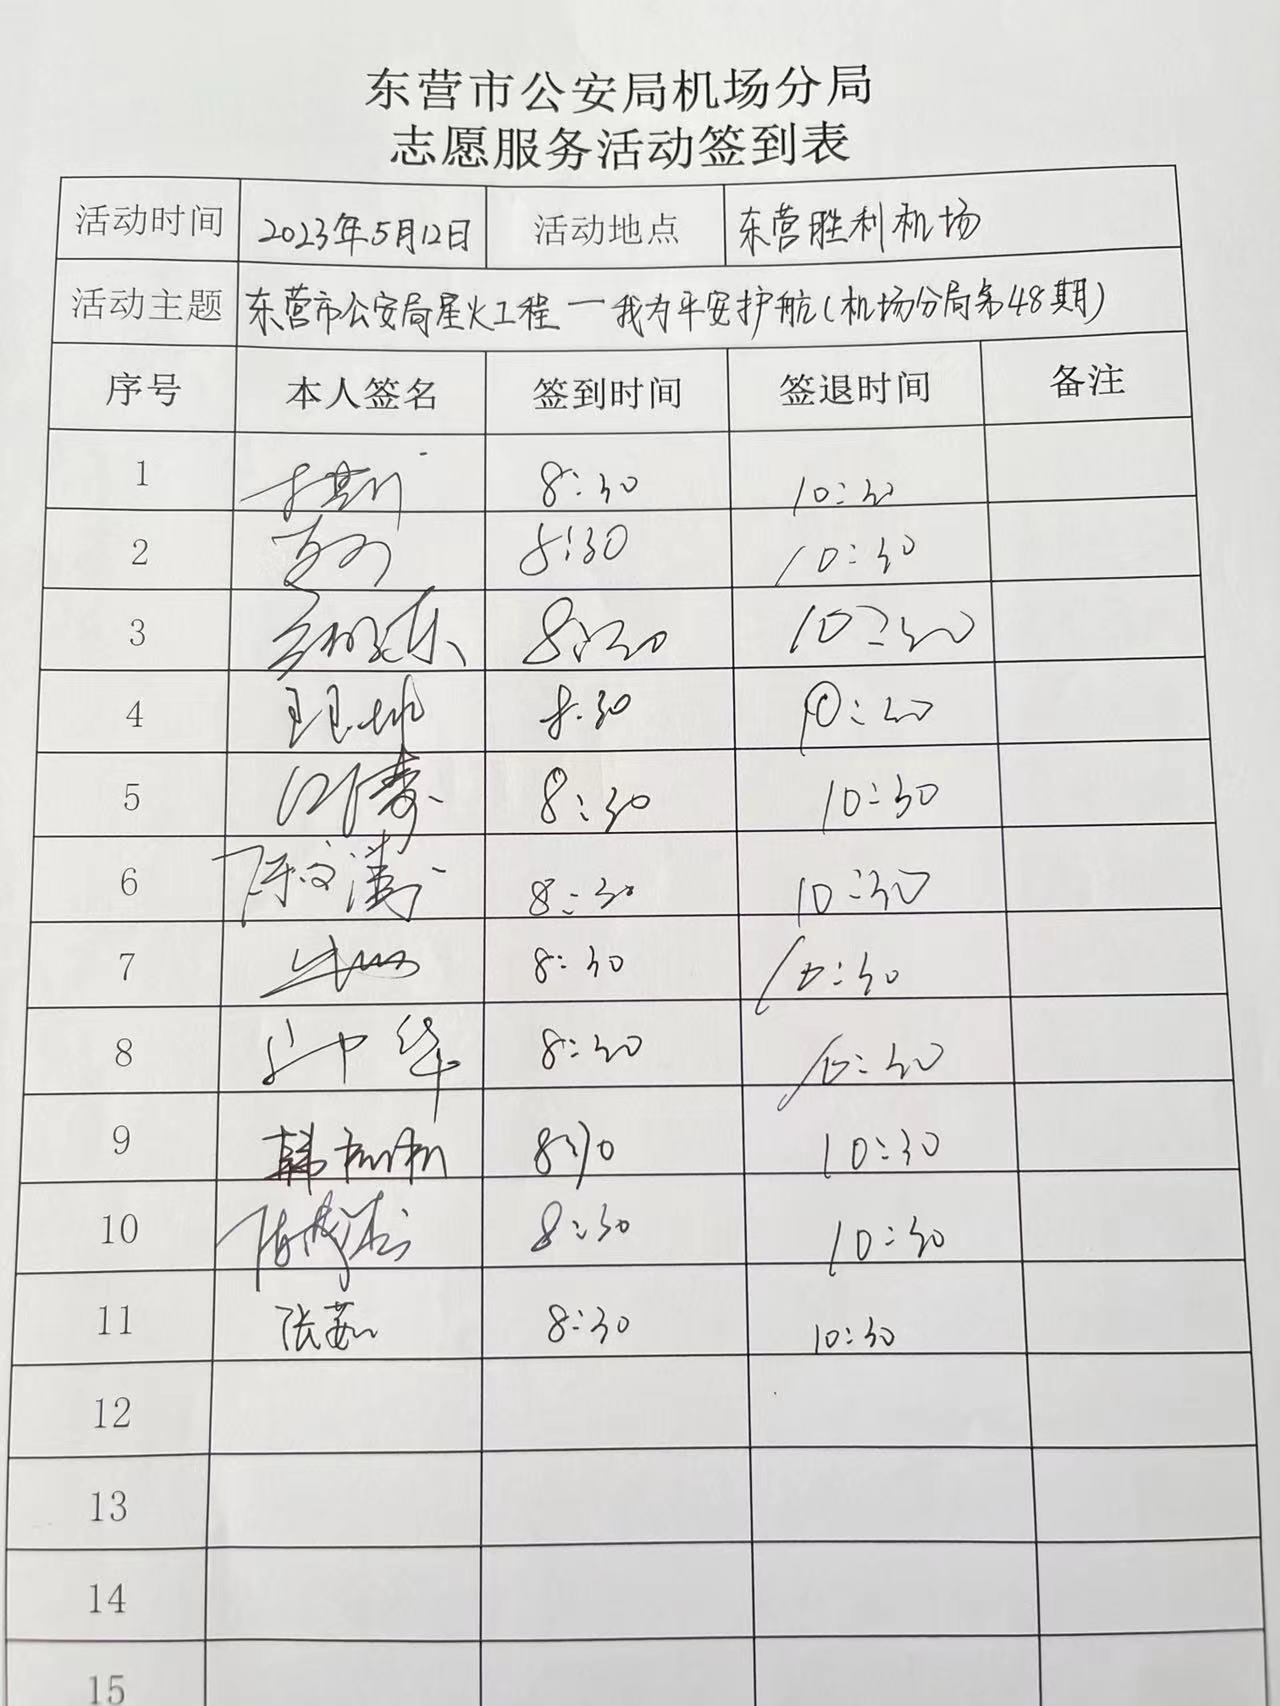 东营市公安局机场分局
志愿服务活动签到表
活动时间 2023年5月12日 活动地点 东营胜利机场
活动主题 东营市公安局星火工程一我为平安护航(机场分局第48期)
序号 本人签名 签到时间 签退时间 备注
1 8:30 10:30
2 8:30 10:30
3 8:30 10:30
4 8:30 10:30
5 8:30 10:30
6 陈文涛 8:30 10:30
7 8:30 10:30
8 中华 8:30 10:30
9 韩彬彬 8:30 10:30
10 8:30 10:30
11 张茹 8:30 10:30
12
13
14
15